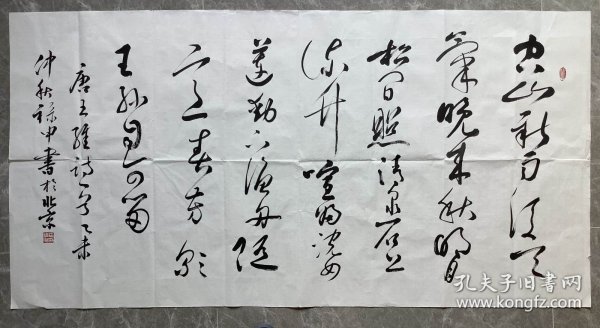 空山新雨後天
氣晚来秋明月
松間照清泉石上
流竹喧歸浣女
蓮動下漁舟随
意春芳歇
王孫自可留
唐王維詩一首乙未
仲秋禄中書於北京
孔夫子旧书网
www.kongfz.com